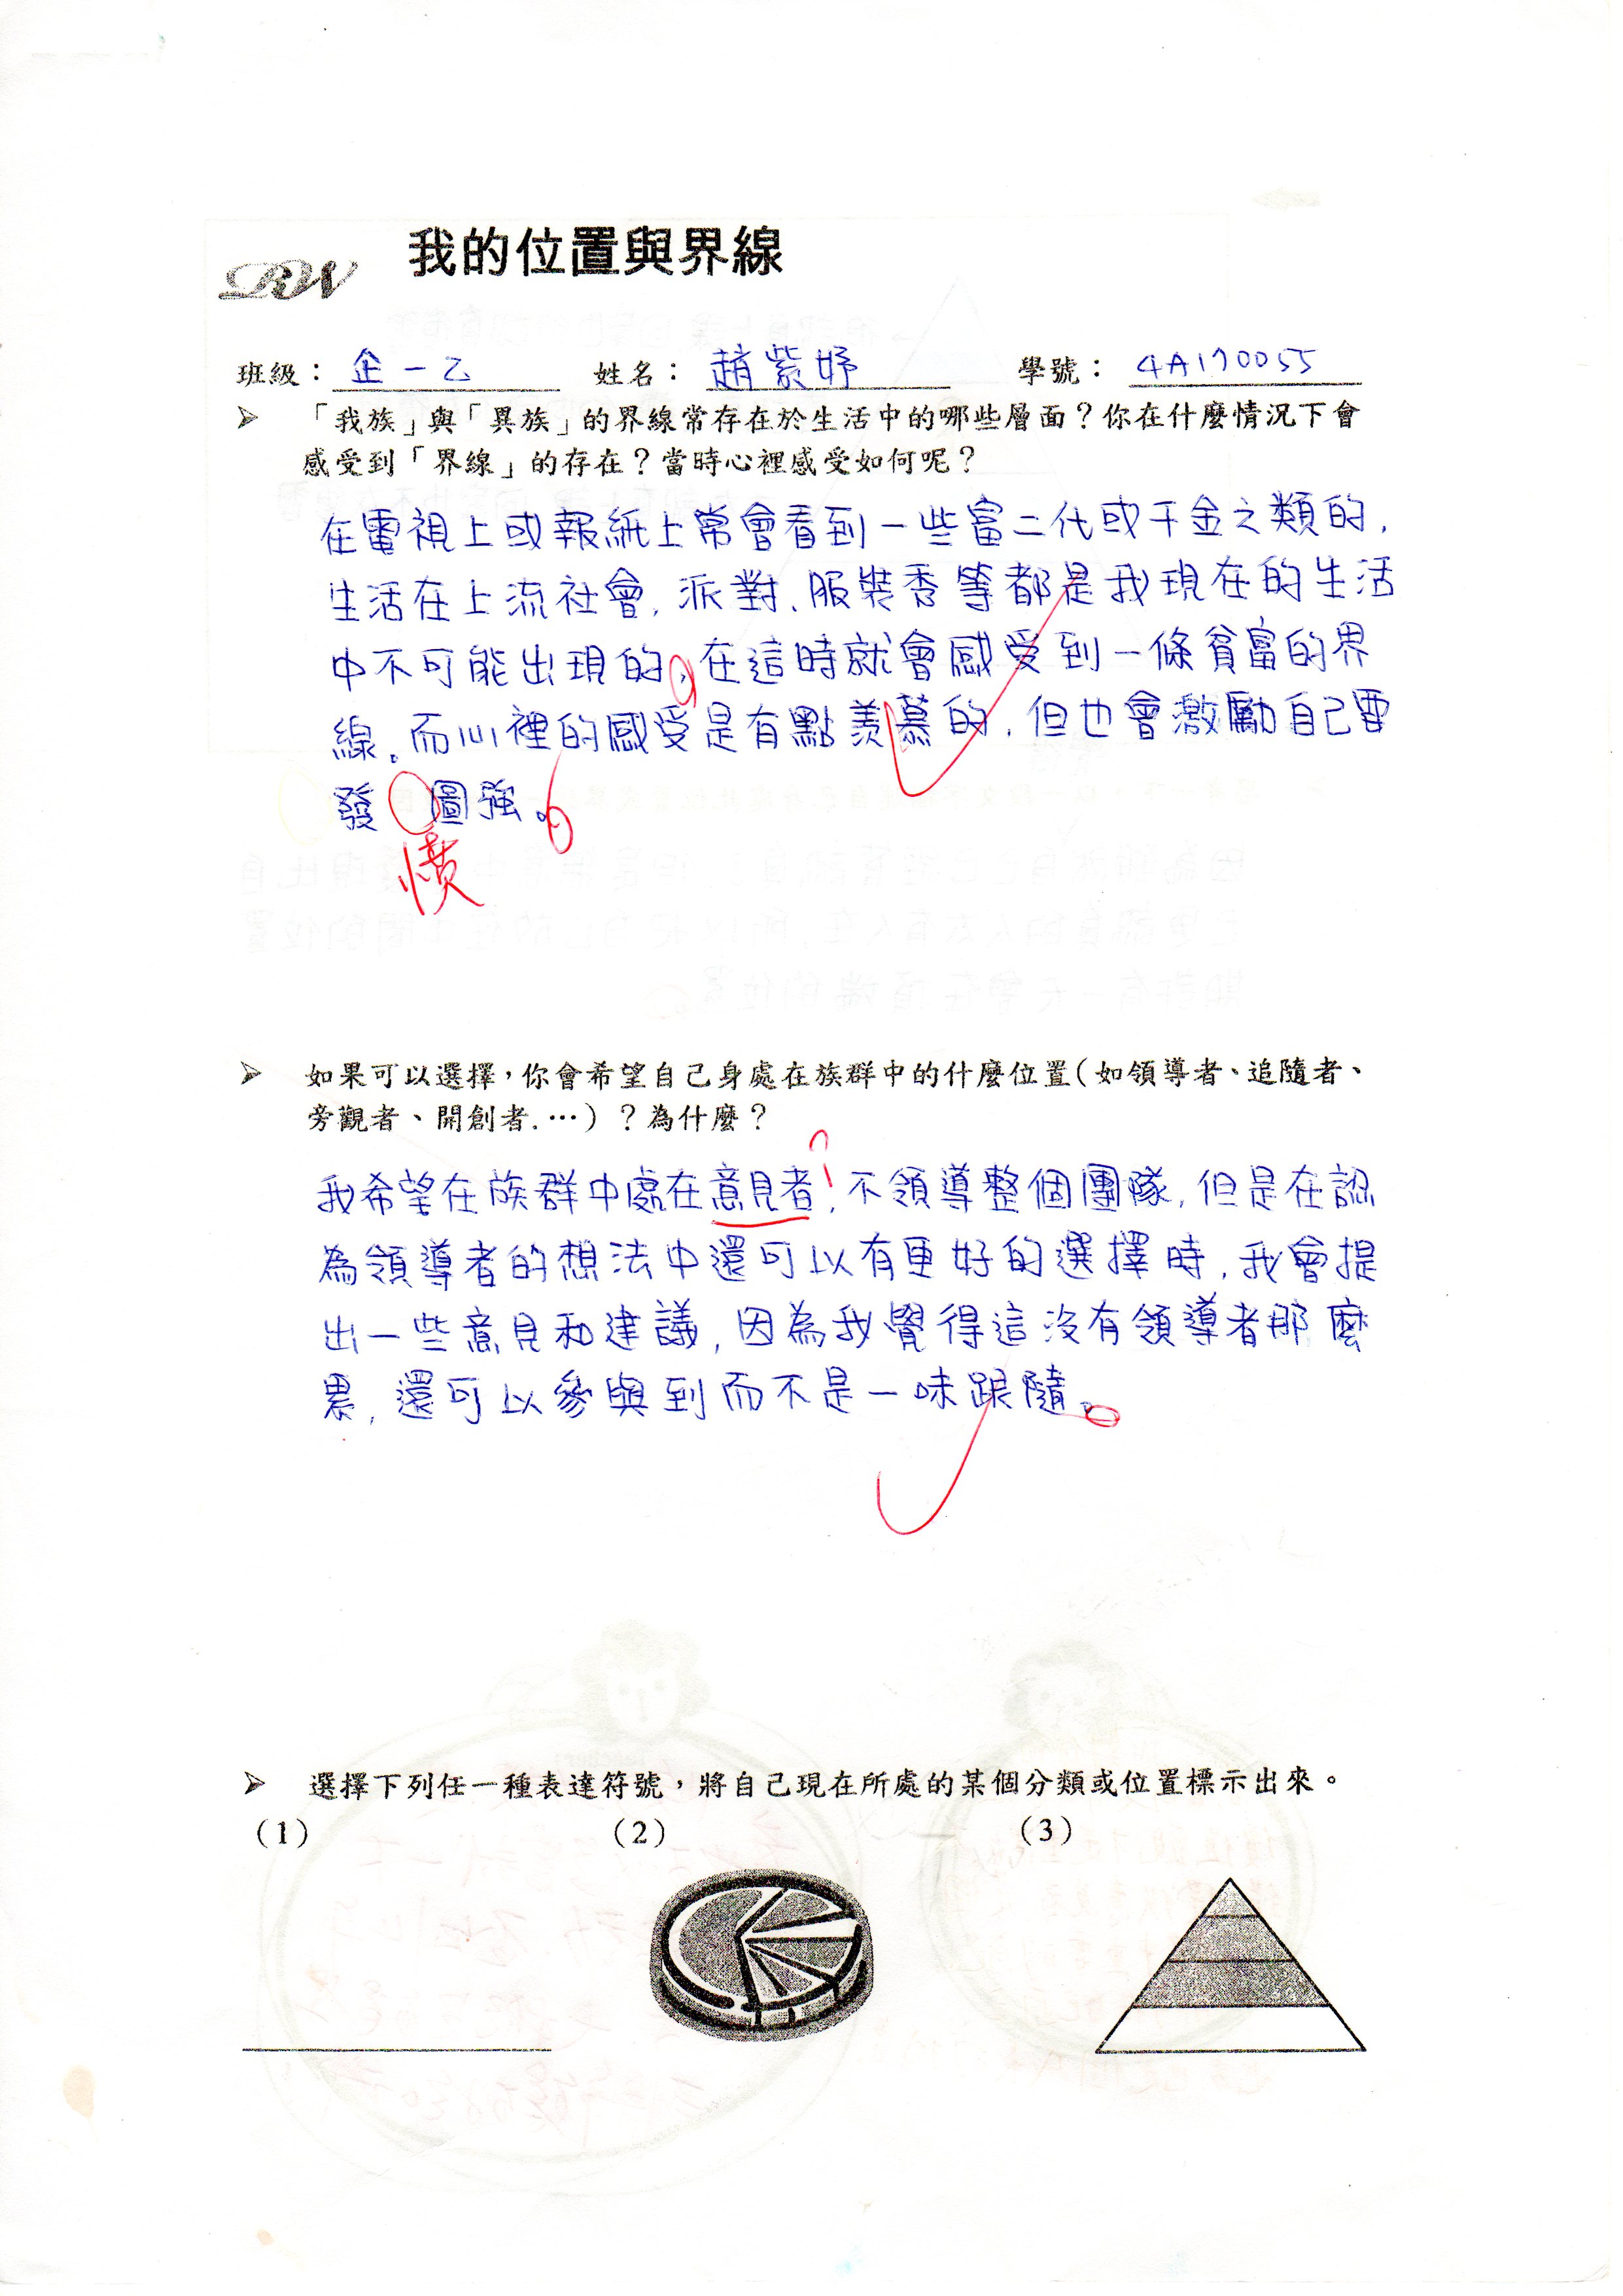 我的位置與界線
RW
班級：企一乙 姓名：趙紫妤 學號：4A170055
➢ 「我族」與「異族」的界線常存在於生活中的哪些層面？你在什麼情況下會
感受到「界線」的存在？當時心裡感受如何呢？
在電視上或報紙上常會看到一些富二代或千金之類的，
生活在上流社會，派對、服裝秀等都是我現在的生活
中不可能出現的，在這時就會感受到一條貧富的界
線。而心裡的感受是有點羨慕的，但也會激勵自己要
發 圖強。
憤
➢ 如果可以選擇，你會希望自己身處在族群中的什麼位置（如領導者、追隨者、
旁觀者、開創者.…）？為什麼？
我希望在族群中處在意見者，不領導整個團隊，但是在認
為領導者的想法中還可以有更好的選擇時，我會提
出一些意見和建議，因為我覺得這沒有領導者那麼
累，還可以參與到而不是一味跟隨。
➢ 選擇下列任一種表達符號，將自己現在所處的某個分類或位置標示出來。
(1) (2) (3)